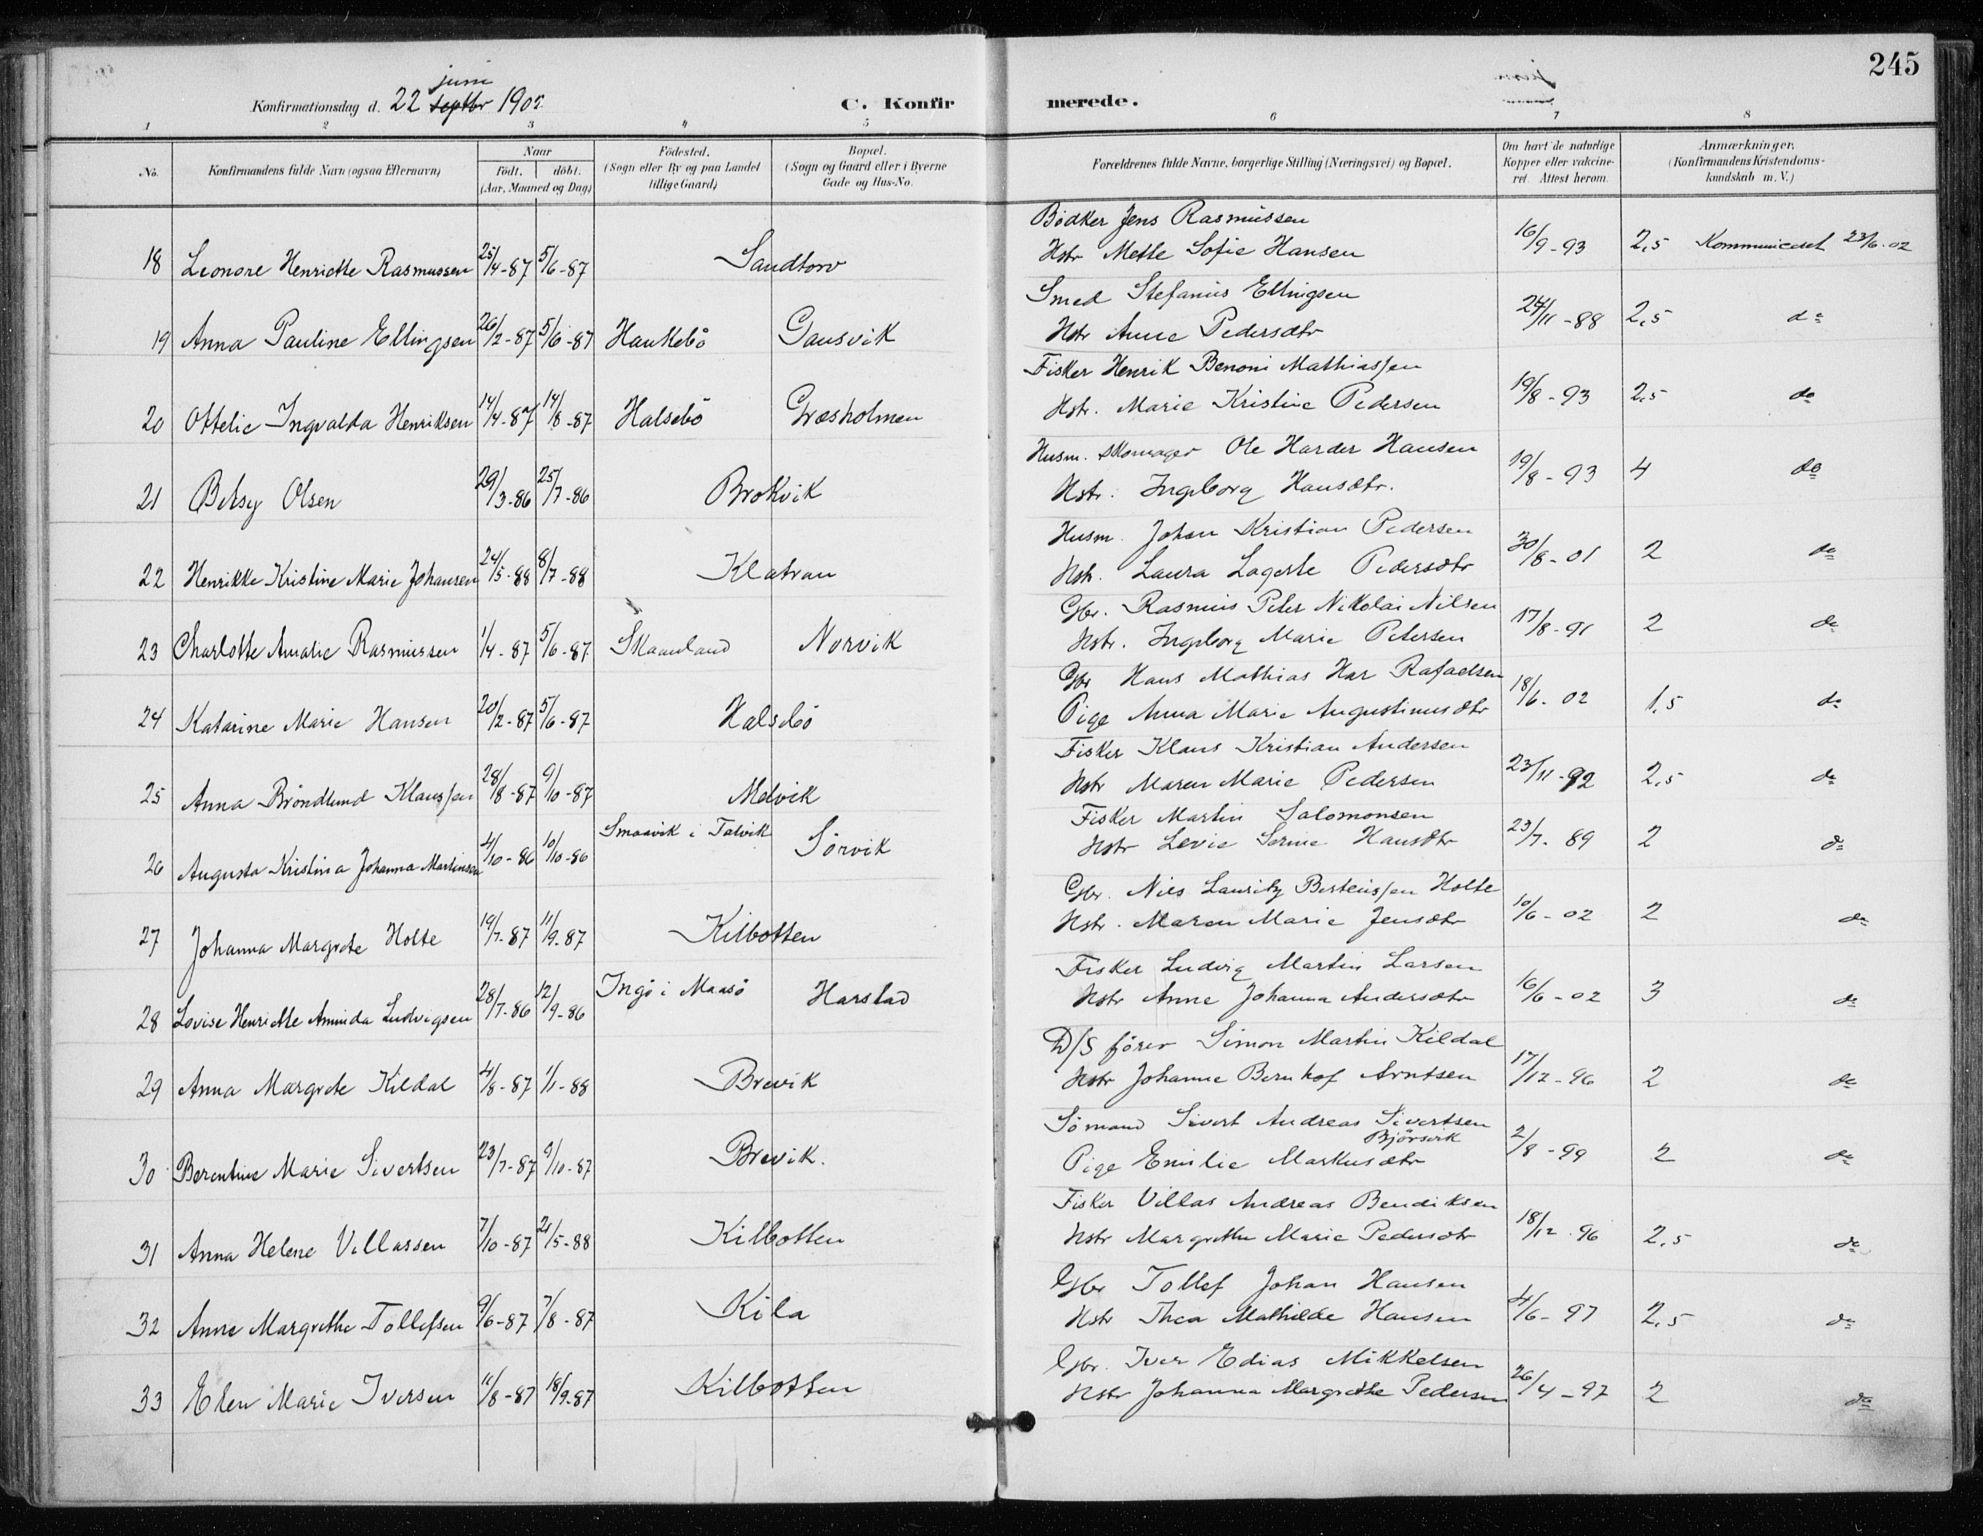 245
juni
Konfirmationsdag d. 22 septbr 1902.
C. Konfirmerede.
1 2 3 4 5 6 7 8
No. Konfirmandens fulde Navn (ogsaa Efternavn) Naar Födt. döbt. (Aar, Maaned og Dag) Födested. (Sogn eller By og paa Landet tillige Gaard) Bopæl. (Sogn og Gaard eller i Byerne Gade og Hus-No. Forældrenes fulde Navne, borgerlige Stilling (Næringsvei) og Bopæl. Om havt de naturlige Kopper eller vakcineret. Attest herom. Anmærkninger. (Konfirmandens Kristendomskundskab m. V.)
Bödker Jens Rasmussen
18 Leonore Henriette Rasmussen 25/4-87 5/6-87 Sandtorv Hstr Mette Sofie Hansen 16/9-93 2,5 Kommuniceret 23/6-02
Smed Stefanus Ellingsen
19 Anna Pauline Ellingsen 26/2-87 5/6-87 Haukebö Gausvik Hstr Anne Pedersdtr 24/11-88 2,5 do
Fisker Henrik Benoni Mathiassen
20 Ottelie Ingvalda Henriksen 14/4-87 14/8-87 Halsebö Græsholmen Hstr. Marie Kristine Pedersen 19/8-93 2,5 do
Husm. Skomager Ole Harder Hansen
21 Betsy Olsen 29/3-86 25/7-86 Brokvik Hstr. Ingeborg Hansdtr. 19/8-93 4 do
Husm. Johan Kristian Pedersen
22 Henrikke Kristine Marie Johansen 24/5-88 8/7-88 Klatran Hstr. Laura Lagerte Pedersdtr 30/8-01 2 do
Gbr. Rasmus Peter Nikolai Nilsen
23 Charlotte Amalie Rasmussen 1/4-87 5/6-87 Skaanland Norvik Hstr. Ingeborg Marie Petersen 17/8-91 2 do
Gbr Hans Mathias Har Rafaelsen
24 Katarine Marie Hansen 20/2-87 5/6-87 Halsebö Pige Anna Marie Augustinusdtr 18/6-02 1,5 do
Fisker Klaus Kristian Andersen
25 Anna Bröndlund Klaussen 28/8-87 9/10-87 Melvik Hstr Maren Marie Pedersen 23/11-92 2,5 do
Fisker Martin Salomonsen
26 Augusta Kristina Johanna Martinsen 4/10-86 10/10-86 Smaavik i Talvik Sörvik Hstr Levie Serine Hansdtr 23/7-89 2 do
Gbr. Nils Lauritz Berteussen Holte
27 Johanna Margrete Holte 19/7-87 11/9-87 Kilbotten Hstr. Maren Marie Jensdtr 10/6-02 2 do
Fisker Ludvig Martin Larsen
28 Lovise Henriette Aminda Ludvigsen 28/7-86 12/9-86 Ingö i Maasö Harstad Hstr Anne Johanna Andersdtr 16/6-02 3 do
D/S förer Simon Martin Kildal
29 Anna Margrete Kildal 4/8-87 1/1-88 Brevik Hstr Johanne Bernhof Arntsen 17/12-96 2 do
Sömand Sivert Andreas Sivertsen
Björsvik
30 Berentine Marie Sivertsen 23/7-87 9/10-87 Brevik. Pige Emilie Markusdtr 2/8-99 2 do
Fisker Villas Andreas Bendiksen
31 Anna Helene Villassen 7/10-87 21/5-88 Kilbotten Hstr Margrethe Marie Pedersdtr 18/12-96 2,5 do
Gbr Tollef Johan Hansen
32 Anne Margrethe Tollefsen 9/6-87 7/8-87 Kila Hstr Thea Mathilde Hansen 4/6-97 2,5 do
Gbr. Iver Edias Mikkelsen
33 Elen Marie Iversen 11/8-87 18/9-87 Kilbotten Hstr Johanna Margrethe Pedersen 26/4-97 2 do